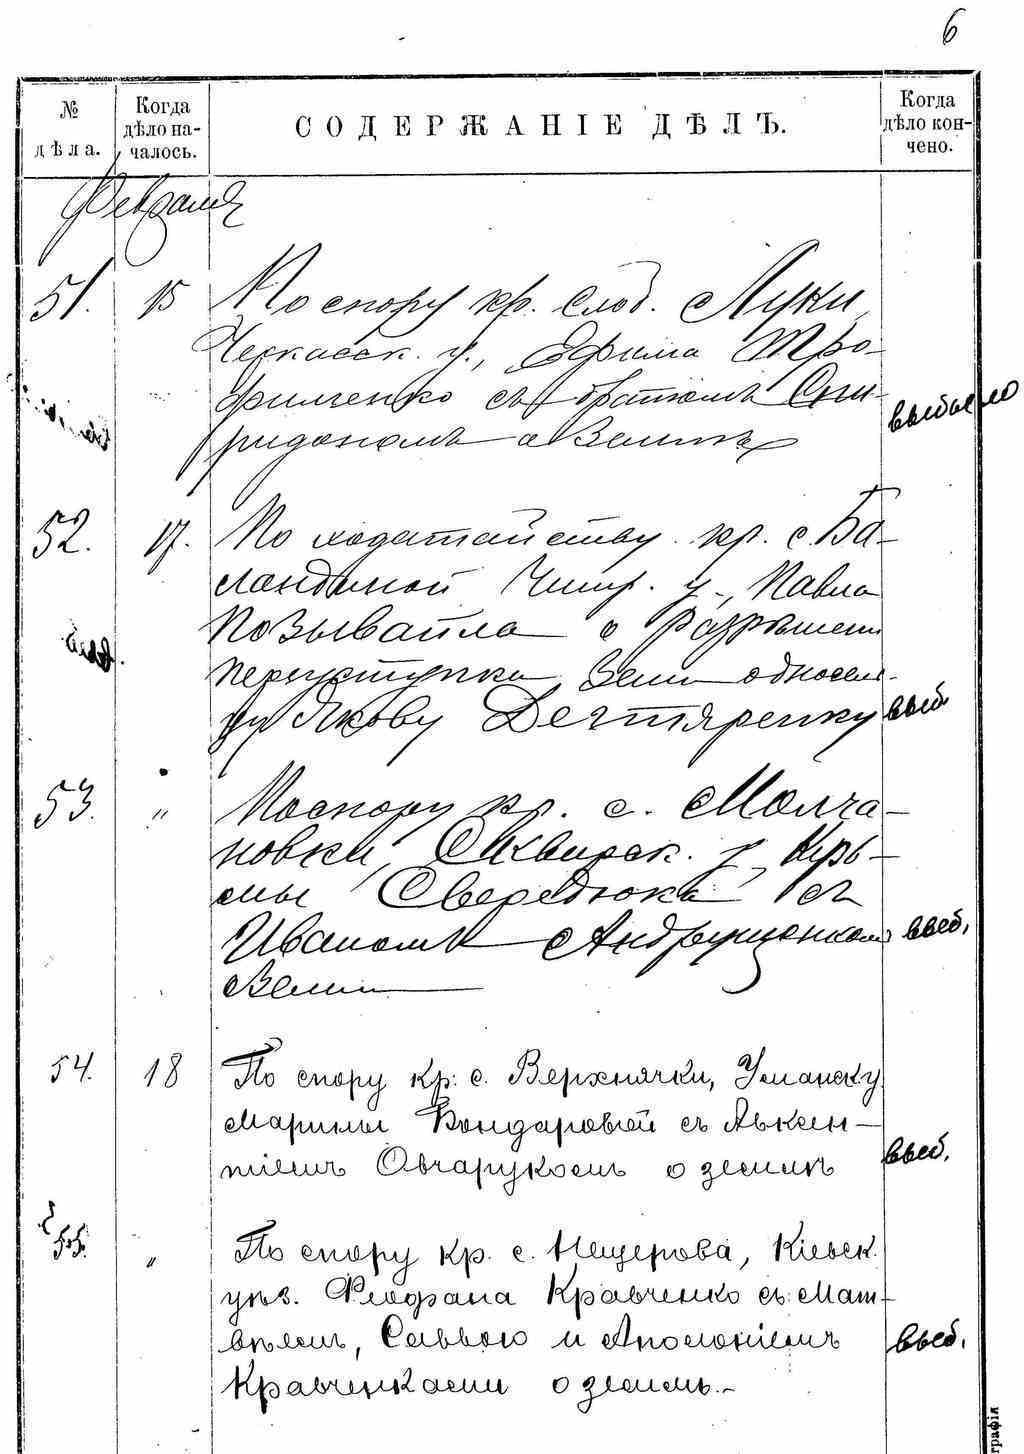 6
№ дѣла.
Когда дѣло началось.
СОДЕРЖАНІЕ ДѢЛЪ.
Когда дѣло кончено.
Февраля
51. 15 По спору кр. слоб. Луки,
Черкасск. у., Ефима Тро-
филченко съ братомъ Спи-
ридономъ о землѣ
выбыло
52. 17. По ходатайству кр. с. Ба-
ландиной Чигир. у., Павла
Позывайла о разрѣшені
переуступки земли односель-
цу Якову Дегтяренку
выб
53. " По спору кр. с. Молча-
новки, Сквирск. у, Кузь-
мы Свередюка съ
Иваномъ Андрущенкомъ
земли
выб.
54. 18 По спору кр. с. Верхнячки, Уманск у.
Марины Бондаровой съ Авксен-
тіемъ Овчарукомъ о землѣ
выб.
55. " По спору кр. с. Нещерова, Кіевск.
уѣз. Феофана Кравченко съ Мат-
вѣемъ, Саввою и Аполоніемъ
Кравченками о землѣ.-
выб.
графія